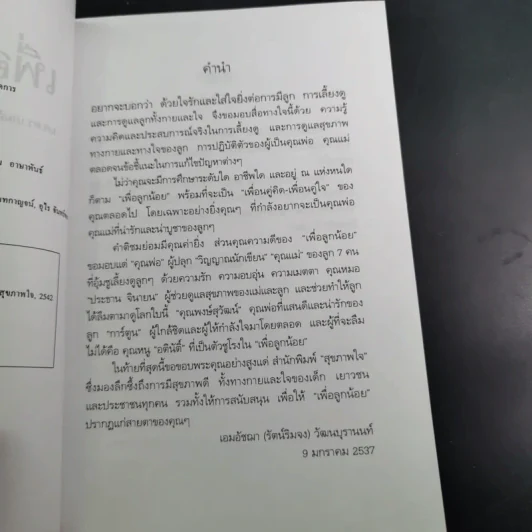 เพื่อ
อาษาพันธ์
สุขภาพใจ, 2542
คำนำ
อยากจะบอกว่า ด้วยใจรักและใส่ใจยิ่งต่อการมีลูก การเลี้ยงดู
และการดูแลลูกทั้งกายและใจ จึงขอมอบสื่อทางใจนี้ด้วย ความรู้
ความคิดและประสบการณ์จริงในการเลี้ยงดู และการดูแลสุขภาพ
ทางกายและทางใจของลูก การปฏิบัติตัวของผู้เป็นคุณพ่อ คุณแม่
ตลอดจนข้อชี้แนะในการแก้ไขปัญหาต่างๆ
ไม่ว่าคุณจะมีการศึกษาระดับใด อาชีพใด และอยู่ ณ แห่งหนใด
ก็ตาม “เพื่อลูกน้อย” พร้อมที่จะเป็น “เพื่อนคู่คิด-เพื่อนคู่ใจ” ของ
คุณตลอดไป โดยเฉพาะอย่างยิ่งคุณๆ ที่กำลังอยากจะเป็นคุณพ่อ
คุณแม่ที่น่ารักและน่าบูชาของลูกๆ
คำติชมย่อมมีคุณค่ายิ่ง ส่วนคุณความดีของ “เพื่อลูกน้อย”
ขอมอบแด่ “คุณพ่อ” ผู้ปลูก “วิญญาณนักเขียน” “คุณแม่” ของลูก 7 คน
ที่อุ้มชูเลี้ยงดูลูกๆ ด้วยความรัก ความอบอุ่น ความเมตตา คุณหมอ
“ประธาน จินายน” ผู้ช่วยดูแลสุขภาพของแม่และลูก และช่วยทำให้ลูก
ได้ลืมตามาดูโลกใบนี้ “คุณพงษ์สุวัฒน์” คุณพ่อที่แสนดีและน่ารักของ
ลูก “การ์ตูน” ผู้ใกล้ชิดและผู้ให้กำลังใจมาโดยตลอด และผู้ที่จะลืม
ไม่ได้คือ คุณหนู “อตินัติ์” ที่เป็นตัวชูโรงใน “เพื่อลูกน้อย”
ในท้ายที่สุดนี้ขอขอบพระคุณอย่างสูงแด่ สำนักพิมพ์ “สุขภาพใจ”
ซึ่งมองลึกซึ้งถึงการมีสุขภาพดี ทั้งทางกายและใจของเด็ก เยาวชน
และประชาชนทุกคน รวมทั้งให้การสนับสนุน เพื่อให้ “เพื่อลูกน้อย”
ปรากฏแก่สายตาของคุณๆ
เอมอัชฌา (รัตน์ริมจง) วัฒนบุรานนท์
9 มกราคม 2537